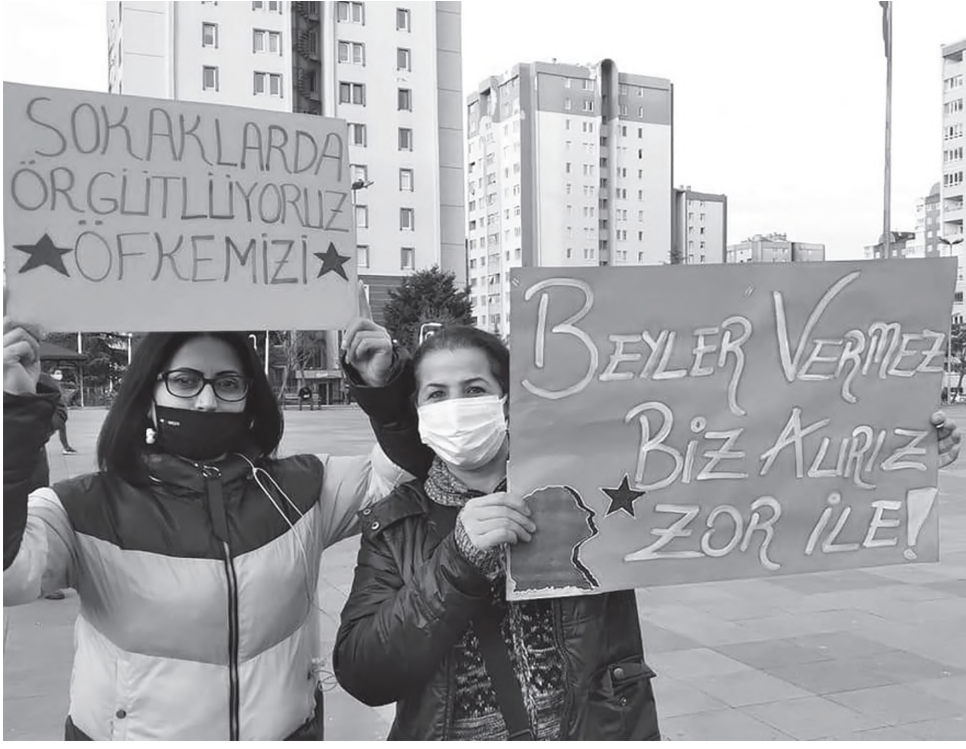 SOKAKLARDA
ÖRGÜTLÜYORUZ
ÖFKEMİZİ
"BEYLER" VERMEZ
BİZ ALIRIZ
ZOR İLE!